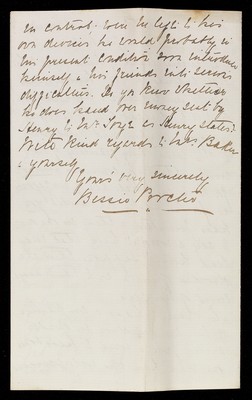 in control. Were he left to his
own devices he would probably in
his present condition soon introduce
himself & his friends into serious
difficulties. Do you know whether
he does hand over money sent by
Henry to Mr. as Henry states?
With kind regards to Mrs. Baker
& yourself
Yours very sincerely
Bessie